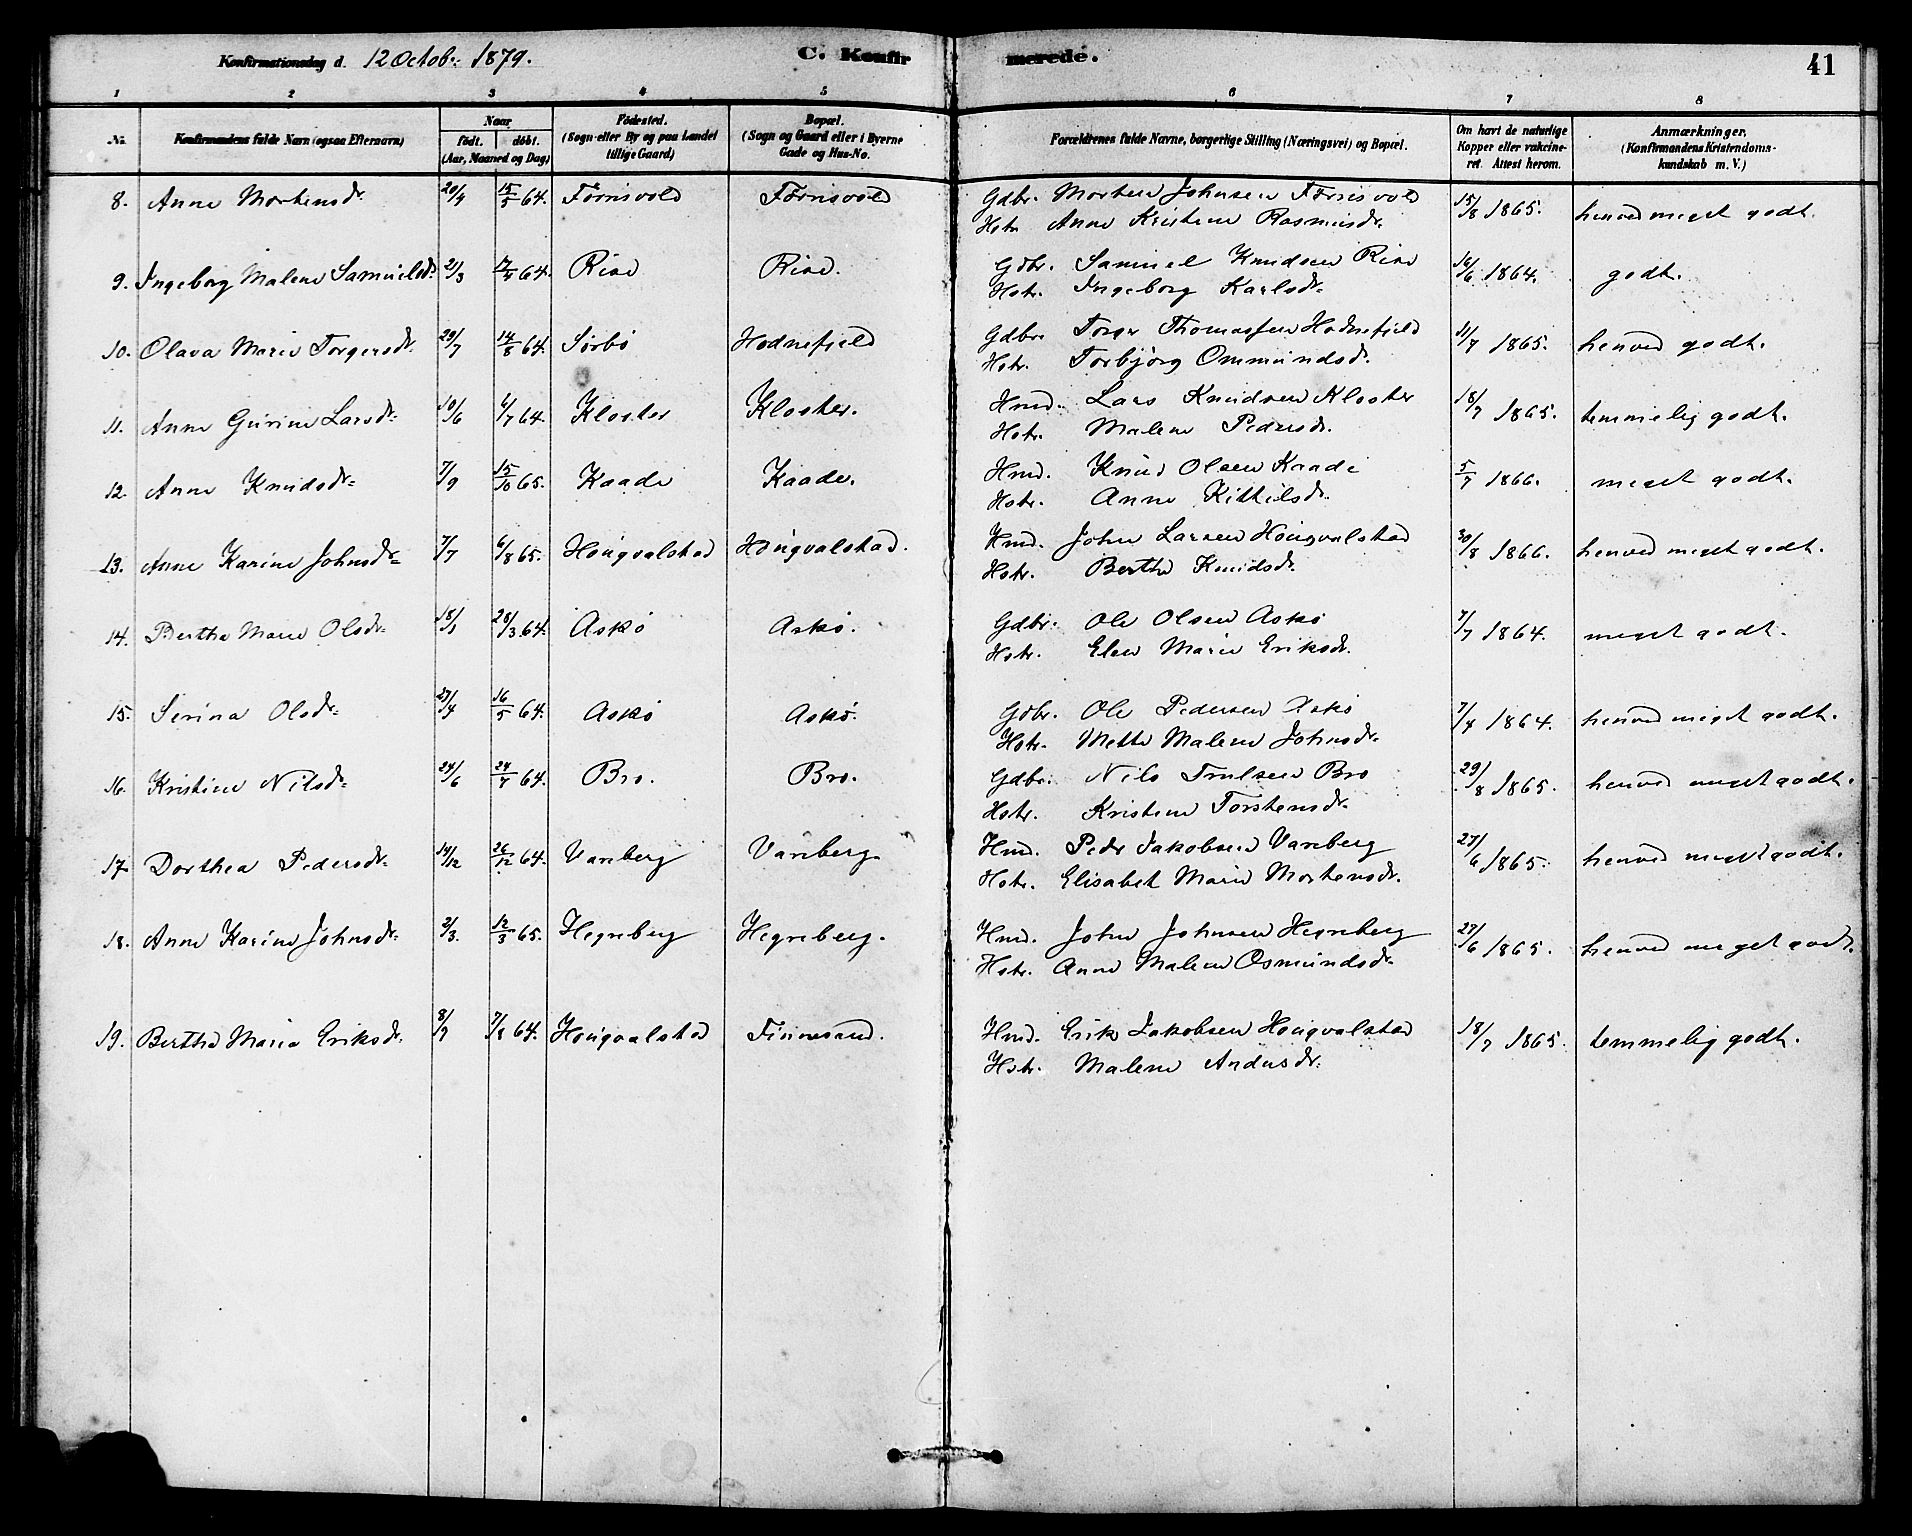 Konfirmationsdag d. 12 Octob: 1879. C. Konfirmerede. 41
1 2 3 4 5 6 7 8
No. Konfirmandens fulde Navn (ogsaa Efternavn) Naar født. døbt. (Aar, Maaned og Dag) Fødested. (Sogn eller By og paa Landet tillige Gaard) Bopæl. (Sogn og Gaard eller i Byerne Gade og Hus-No. Forældrenes fulde Navne, borgerlige Stilling (Næringsvei) og Bopæl. Om havt de naturlige Kopper eller vakcineret. Attest herom. Anmærkninger. (Konfirmandens Kristendomskundskab m. V.)
8. Anne Mortensdr. 20/4 15/5 64. Førnsvold Førnsvold Gdbr. Morten Johnsen Førnsvold 15/8 1865. henved meget godt.
Hstr. Anne Kristine Rasmusdr.
9. Ingeborg Malene Samuelsdr. 2/3 17/4 64. Rise Rise. Gdbr. Samuel Knudsen Rise 16/6 1864. godt.
Hstr. Ingeborg Karlsdr.
10. Olava Marie Torgersdr. 29/7 14/8 64. Sørbø Hodnefjeld Gdbr. Torger Thomassen Hodnefjeld 11/7 1865. henved godt.
Hstr. Torbjörg Ommundsdr.
11. Anne Gurine Larsdr. 10/6 4/7 64. Kloster Kloster. Hmd. Lars Knudsen Kloster 18/7 1865. temmelig godt.
Hstr. Malene Pedersdr.
12. Anne Knudsdr. 7/9 15/10 65. Kaade Kaade. Hmd. Knud Olsen Kaade 5/7 1866. meget godt.
Hstr. Anne Kittilsdr.
13. Anne Karine Johnsdr. 7/7 6/8 65. Hougvalstad Hougvalstad. Hmd. John Larsen Hougvalstad 30/8 1866. henved meget godt.
Hstr. Bertha Knudsdr.
14. Bertha Marie Olsdr. 18/1 28/3 64. Askø Askø. Gdbr. Ole Olsen Askø 7/7 1864. meget godt.
Hstr. Elen Marie Eriksdr.
15. Serina Olsdr. 27/4 16/5 64. Askø Askø. Gdbr. Ole Pedersen Askø 7/7 1864. henved meget godt.
Hstr. Mette Malene Johnsdr.
16. Kristine Nilsdr. 24/6 24/7 64. Bro. Bro. Gdbr. Nils Trulsen Bro 29/8 1865. henved meget godt.
Hstr. Kristine Torstensdr.
17. Dorthea Pedersdr. 14/12 26/12 64. Vareberg Vareberg. Hmd. Peder Jakobsen Vareberg 27/6 1865. henved meget godt.
Hstr. Elisabet Marie Mortensdr.
18. Anne Karine Johnsdr. 2/3. 12/3 65. Hegreberg Hegreberg. Hmd. John Johnsen Hegreberg 27/6 1865. henved meget godt.
Hstr. Anne Malene Osmundsdr.
19. Bertha Maria Eriksdr. 8/7 7/8 64. Hougvalstad Finnesand. Hmd. Erik Jakobsen Hougvalstad 18/7 1865. temmelig godt.
Hstr. Malene Andersdr.